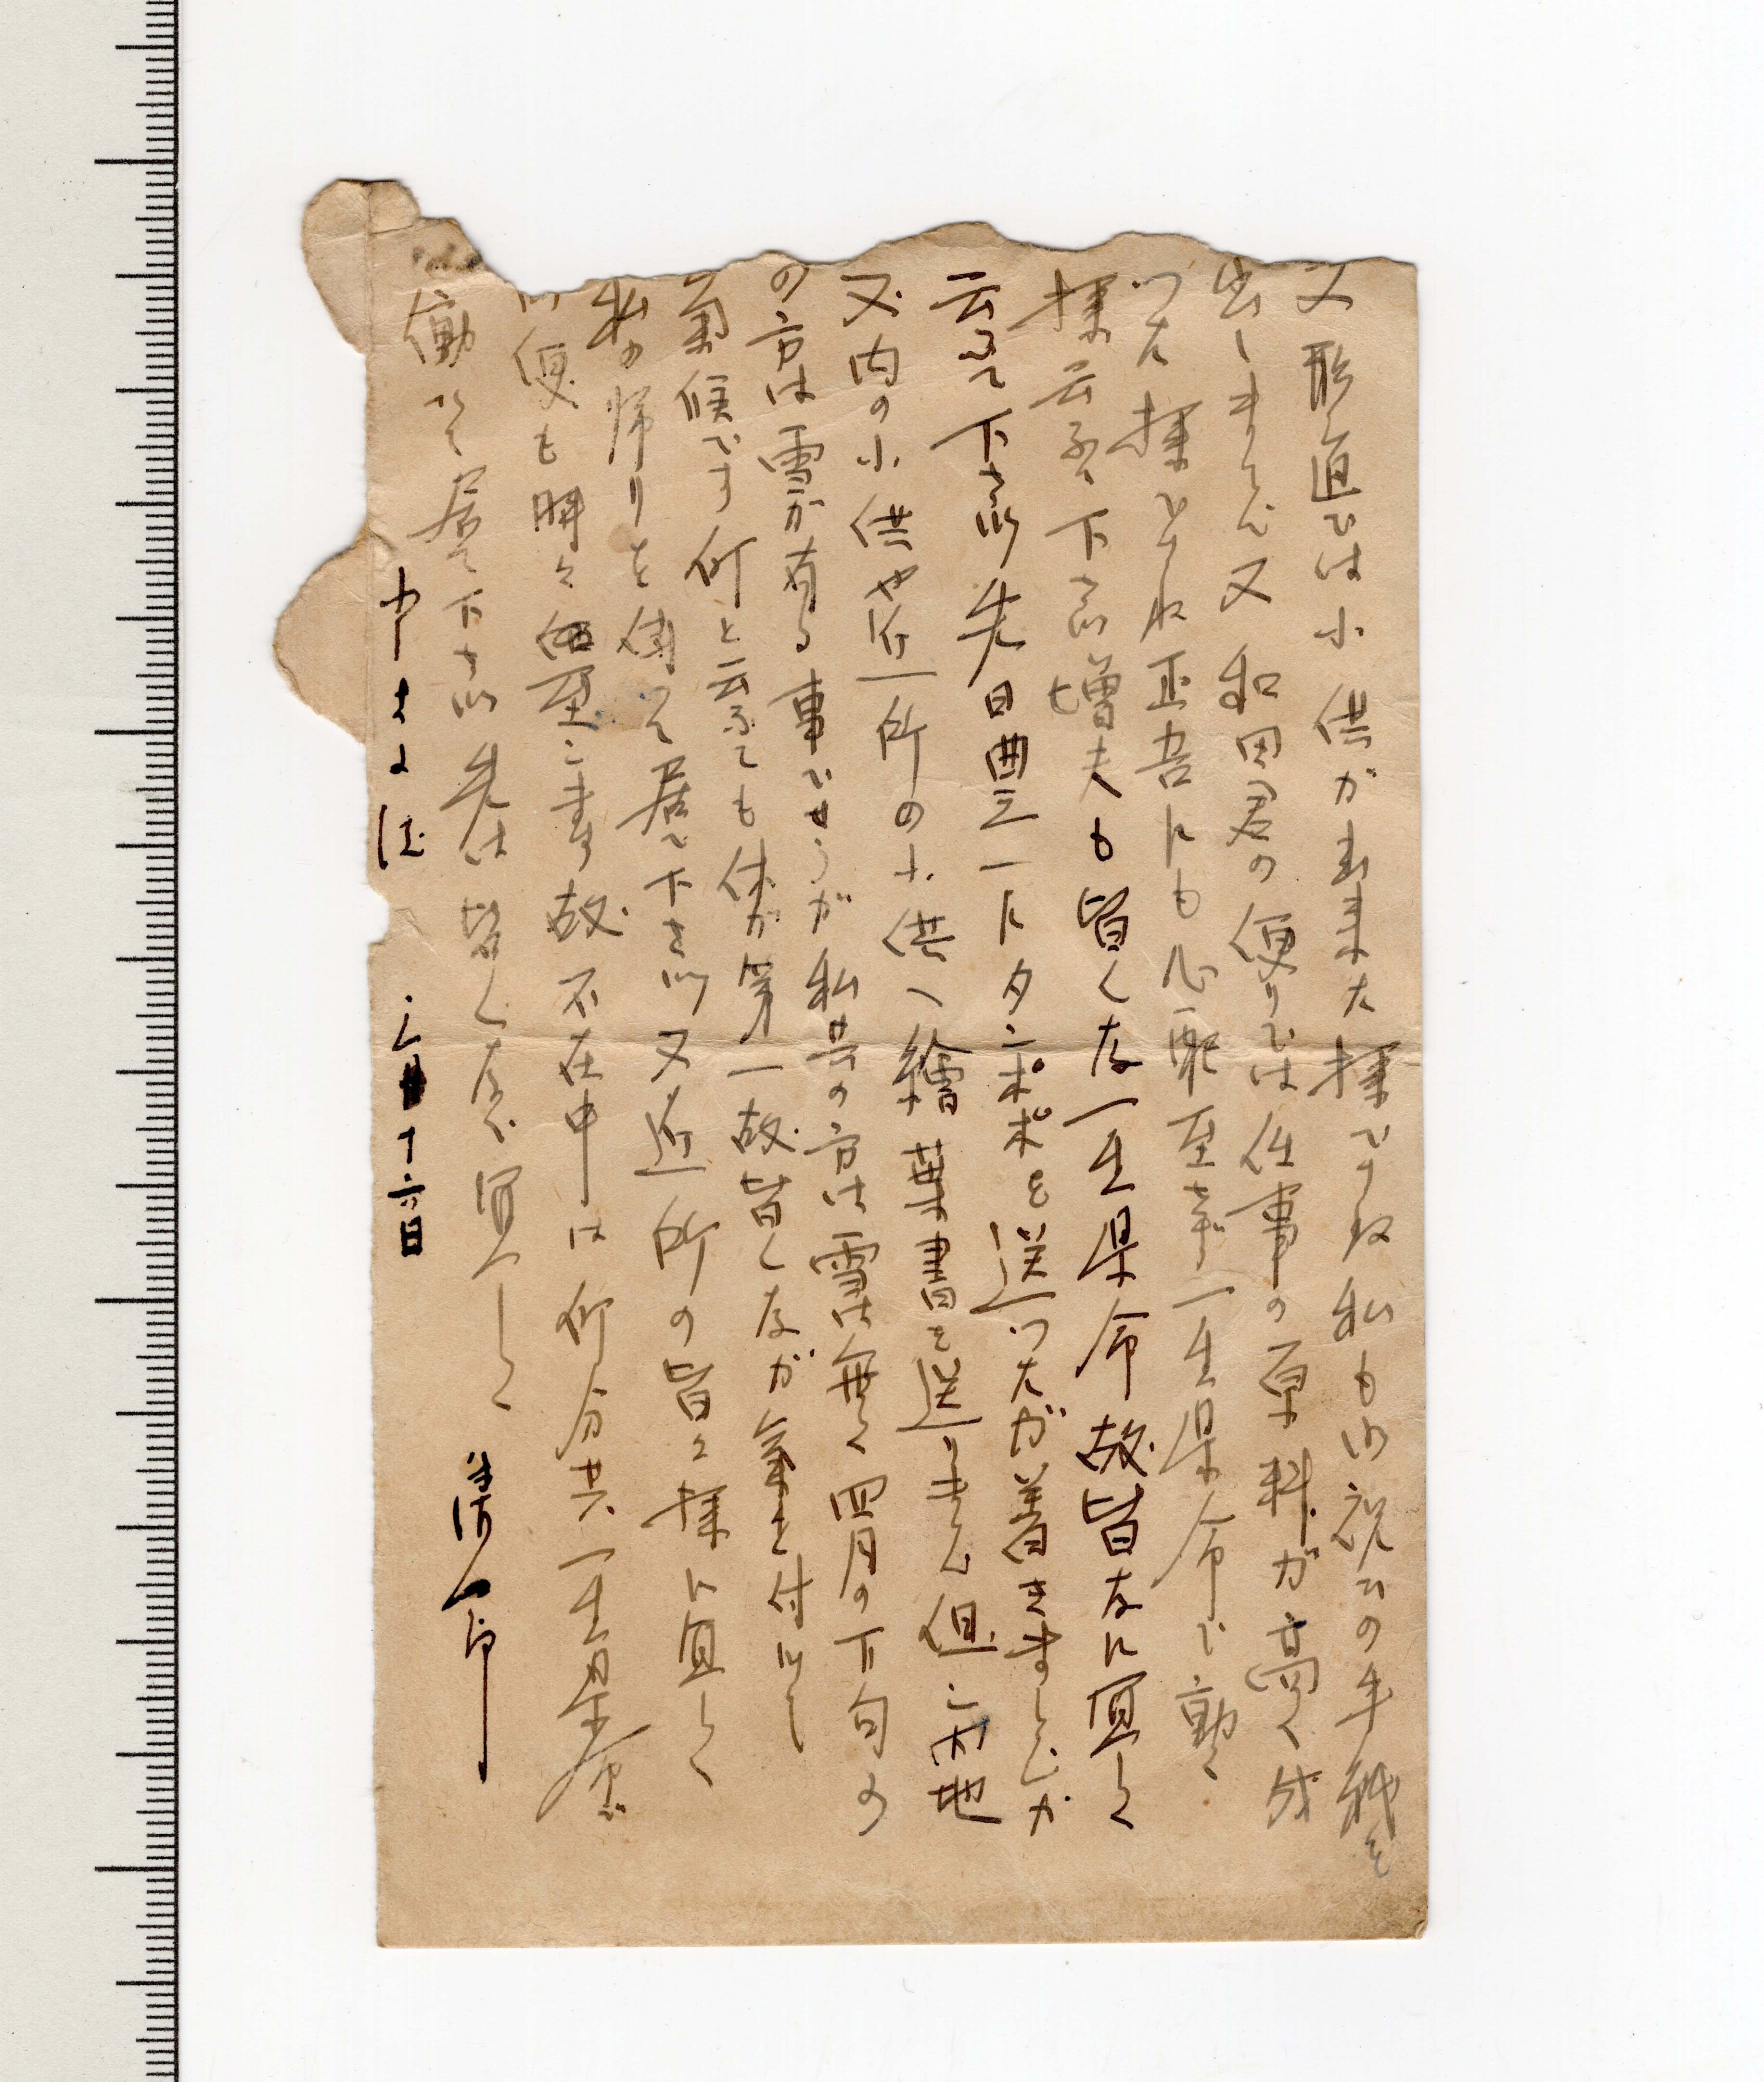 又形直では小供が出来た様ですね私もお祝ひの手紙を
出しません又和田君の便りでは仕事の原料が高く成
つた様ですね正吾にも心配至ず一生県命で働く
様云ふて下さい増夫も皆んな一生県命故皆なに宜しく
も
云ふて下さい先日豊一にタンポポを送つたが着きましたか
又内の小供や近所の小供へ繪葉書を送りません但し内地
の方は雪が有る事でせうが私共の方は雪は無く四月の下旬の
気候です何と云ふても体が第一故皆んなが気を付けて
私の帰りを待つて居て下さい又近所の皆々様に宜しく
便も時々出至します故不在中は何分共一生県命
働いて居て下さい先は皆んなに宜しく
一郎
中さよ
十六日